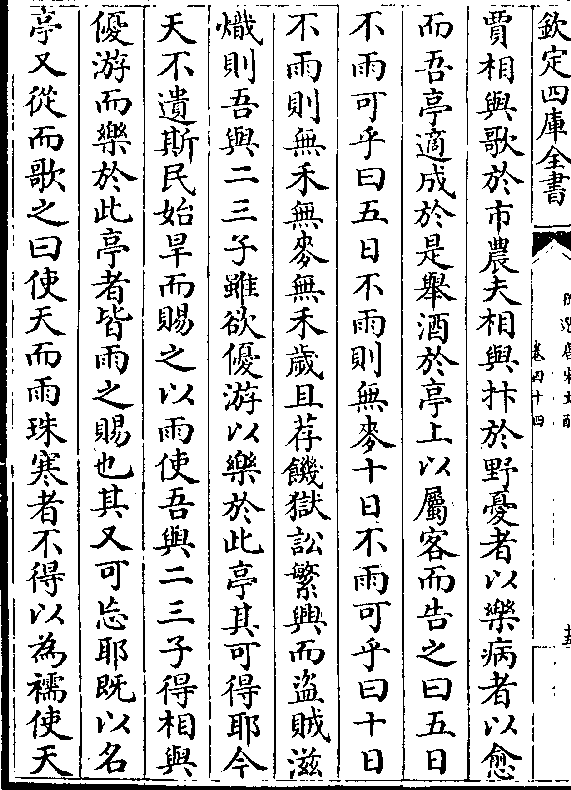 欽定四庫全書
卷四十四
賈相與歌於市農夫相與抃於野憂者以樂病者以愈
而吾亭適成於是舉酒於亭上以屬客而告之曰五日
不雨可乎曰五日不雨則無麥十日不雨可乎曰十日
不雨則無禾無麥無禾歲且荐饑獄訟繁興而盜賊滋
熾則吾與二三子雖欲優游以樂於此亭其可得耶今
天不遺斯民始旱而賜之以雨使吾與二三子得相與
優游而樂於此亭者皆雨之賜也其又可忘耶既以名
亭又從而歌之曰使天而雨珠寒者不得以為襦使天